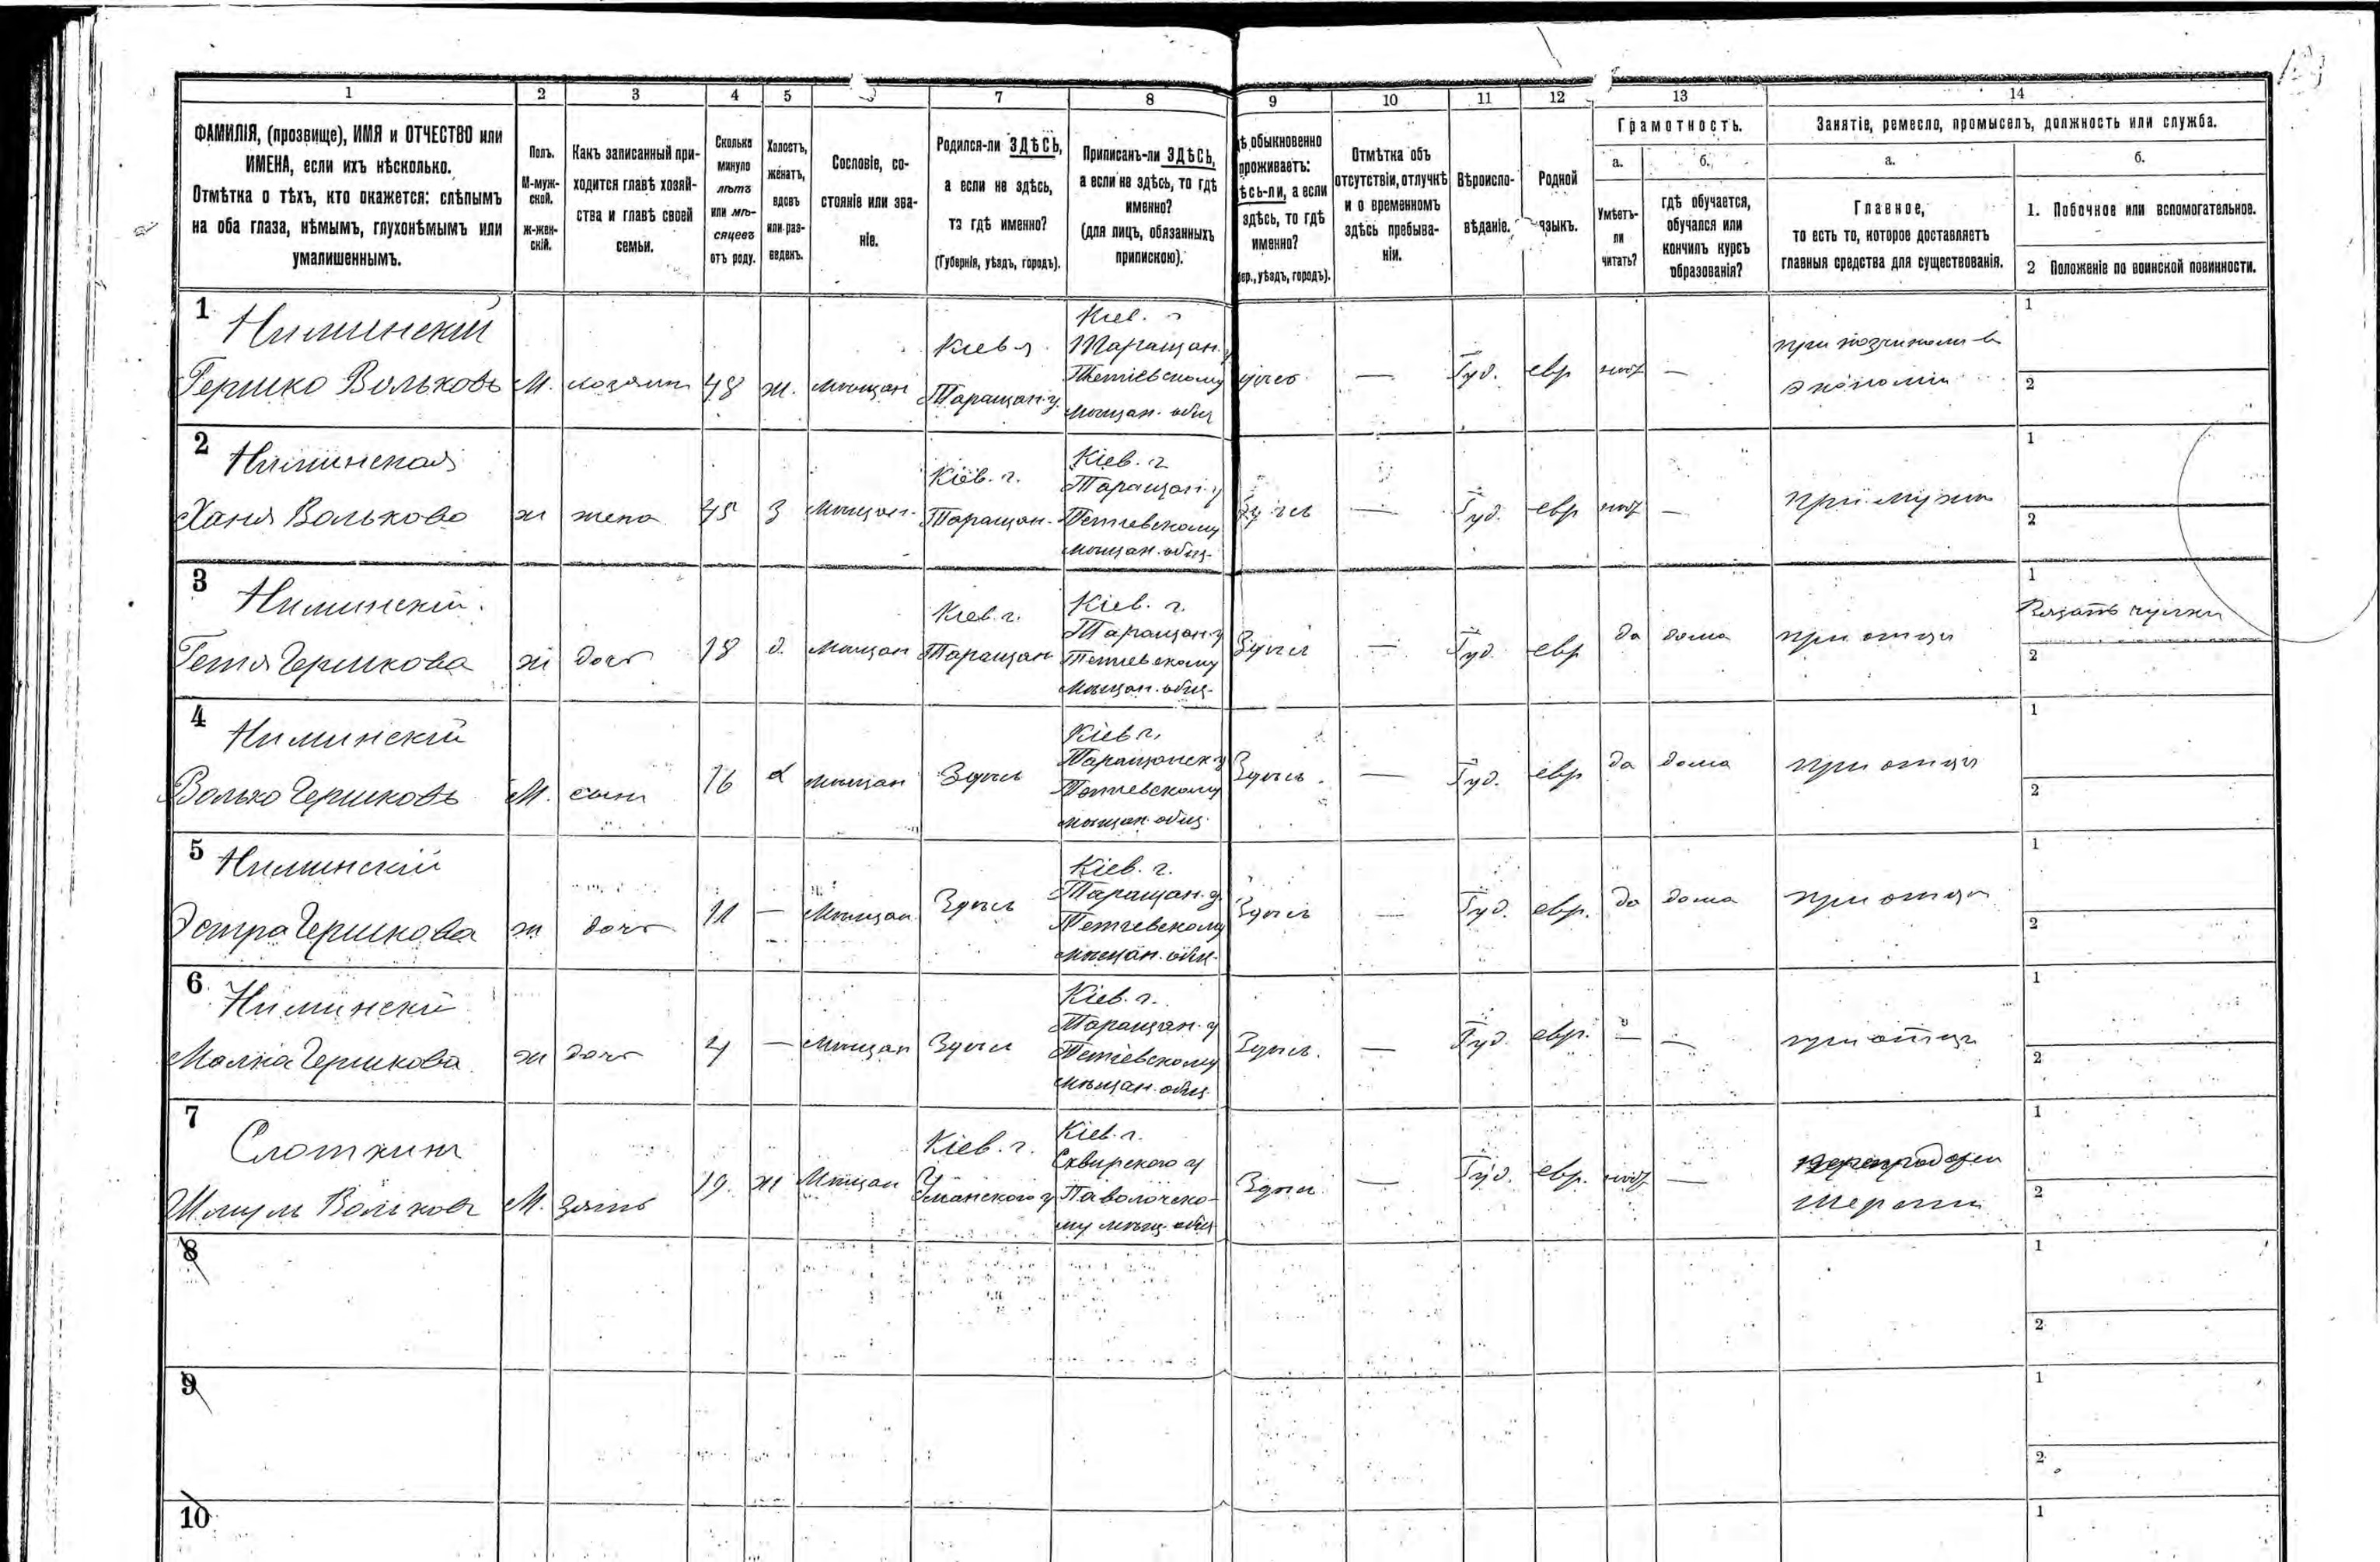 1 2 3 4 5 7 8 9 10 11 12 13 14
ФАМИЛІЯ, (прозвище), ИМЯ и ОТЧЕСТВО или
ИМЕНА, если ихъ нѣсколько.
Отмѣтка о тѣхъ, кто окажется: слѣпымъ
на оба глаза, нѣмымъ, глухонѣмымъ или
умалишеннымъ.
Полъ.
М-муж-
ской.
ж-жен-
скій.
Какъ записанный при-
ходится главѣ хозяй-
ства и главѣ своей
семьи.
Сколько
минуло
лѣтъ
или мѣ-
сяцевъ
отъ роду.
Холостъ,
женатъ,
вдовъ
или раз-
веденъ.
Сословіе, со-
стояніе или зва-
ніе.
Родился-ли ЗДѢСЬ,
а если не здѣсь,
то гдѣ именно?
(Губернія, уѣздъ, городъ).
Приписанъ-ли ЗДѢСЬ,
а если не здѣсь, то гдѣ
именно?
(для лицъ, обязанныхъ
припискою).
ѣ обыкновенно
проживаетъ:
ѣсь-ли, а если
здѣсь, то гдѣ
именно?
ер., уѣздъ, городъ).
Отмѣтка объ
отсутствіи, отлучкѣ
и о временномъ
здѣсь пребыва-
ніи.
Вѣроиспо-
вѣданіе.
Родной
языкъ.
Грамотность.
а.
Умѣетъ-
ли
читать?
б.
гдѣ обучается,
обучался или
кончилъ курсъ
образованія?
Занятіе, ремесло, промыселъ, должность или служба.
а.
Главное,
то есть то, которое доставляетъ
главныя средства для существованія.
б.
1. Побочное или вспомогательное.
2 Положеніе по воинской повинности.
1
Ниминскій
Гершко Вольковъ
М. хозяинъ 48 ж. мѣщан
Кіев г.
Таращан. у.
Кіев. г.
Таращан. у
Тетіевскому
мѣщан. общ
здѣсь — Іуд. евр нѣт —
экономіи
1
2
2
Ниминская
Ханя Волькова
ж жена 45 з мѣщан.
Кіев. г.
Таращан.
Кіев. г.
Таращан. у
Тетіевскому
мѣщан. общ.
Здѣсь — Іуд. евр нѣт —
при мужѣ
1
2
3
Ниминскій
Гершкова
ж дочь 18 д. мѣщан
Кіев. г.
Таращан
Кіев. г.
Таращан. у
Тетіевскому
мѣщан. общ.
Здѣсь — Іуд. евр да дома
при отцѣ
1
Вязать чулки
2
4
Ниминскій
Волько Гершковъ
М. сынъ 16 х мѣщан Здѣсь
Кіев г.
Таращанск у
Тетіевскому
мѣщан. общ.
Здѣсь. — Іуд. евр да дома
при отцѣ
1
2
5
Ниминскій
Эстра Гершкова
ж дочь 11 — мѣщан Здѣсь
Кіев. г.
Таращан. у.
Тетіевскому
мѣщан. общ.
Здѣсь — Іуд. евр. да дома
при отцѣ
1
2
6
Ниминскій
Малка Гершкова
ж дочь 4 — мѣщан Здѣсь
Кіев. г.
Таращан. у
Тетіевскому
мѣщан. общ
Здѣсь. — Іуд. евр. — —
при отцѣ
1
2
7
Слоткинъ
Шмуль Вольковъ
М. зять 19. ж Мѣщан
Кіев. г.
Уманского у
Кіев. г.
Сквирского у
Паволочско-
му мѣщ. общ
Здѣсь — Іуд. евр. нѣт —
1
2
8
1
2
9
1
2
10
1